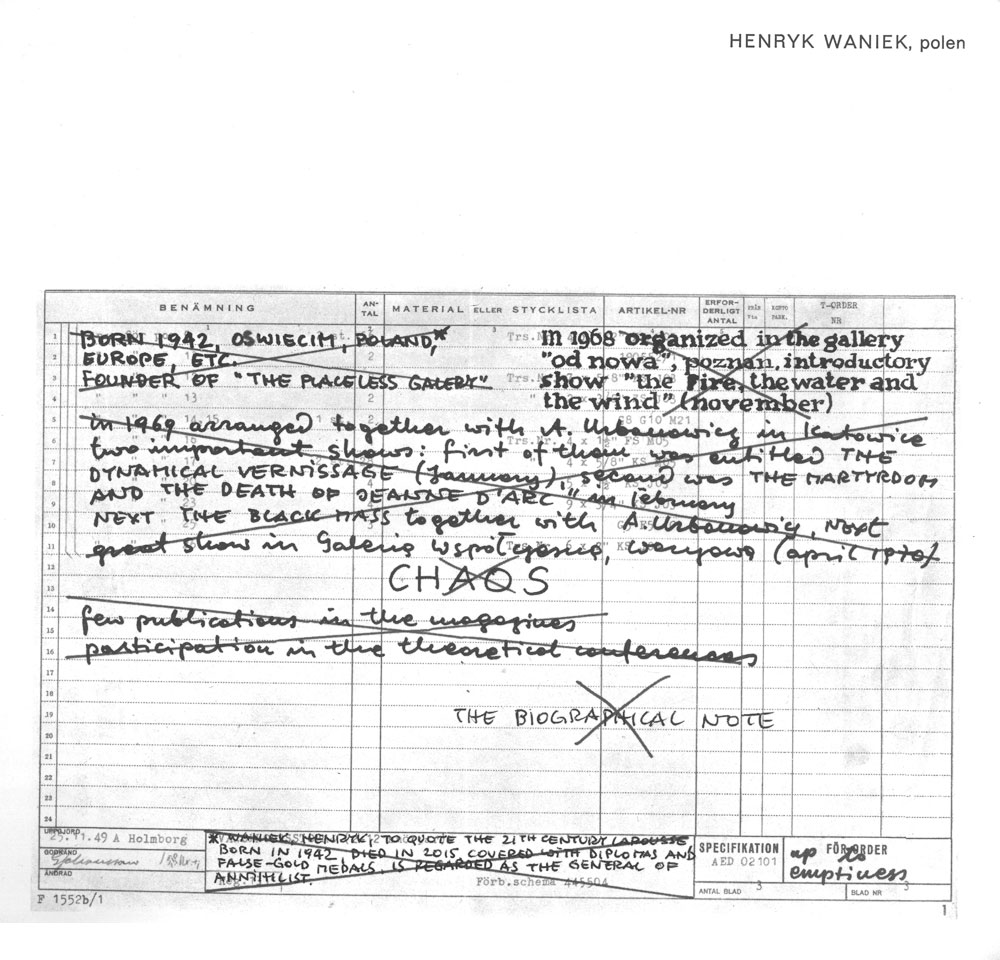 HENRYK WANIEK, polen
BENÄMNING AN-TAL MATERIAL ELLER STYCKLISTA ARTIKEL-NR ERFOR-DERLIGT ANTAL FRÅN KONTO T-ORDER NR
1 BORN 1942, OSWIECIM, POLAND,* in 1968 organized in the gallery
2 EUROPE, ETC. "od nowa", poznan, introductory
3 FOUNDER OF "THE PLACELESS GALERY" show "the Fire, the water and
4 the wind" (november)
5 in 1969 arranged together with A. Urbanowicz in Katowice
6 two important shows: first of them was entitled THE
7 DYNAMICAL VERNISSAGE (January), second was THE MARTYRDOM
8 AND THE DEATH OF JEANNE D'ARC" in february
9 NEXT THE BLACK MASS together with A. Urbanowicz, next
10
11 great show in Galeria współczesna, (april 1970)
12 CHAOS
13
14 few publications in the magazines
15
16 participation in the theoretical conferences
17
18
19 THE BIOGRAPHICAL NOTE
20
21
22
23
24
UPPGJORD 25.11.49 A Holmborg
GODKÄND
ÄNDRAD
* WANIEK, HENRYK, TO QUOTE THE 21TH CENTURY LAROUSSE
BORN IN 1942 DIED IN 2015 COVERED WITH DIPLOMAS AND
FALSE-GOLD MEDALS, IS REGARDED AS THE GENERAL OF
ANNIHILIST.
Förb.schema 445504
SPECIFIKATION FÖR ORDER
AED 02101
up to
emptiness
ANTAL BLAD 3 BLAD NR 3
F 1552b/1
1